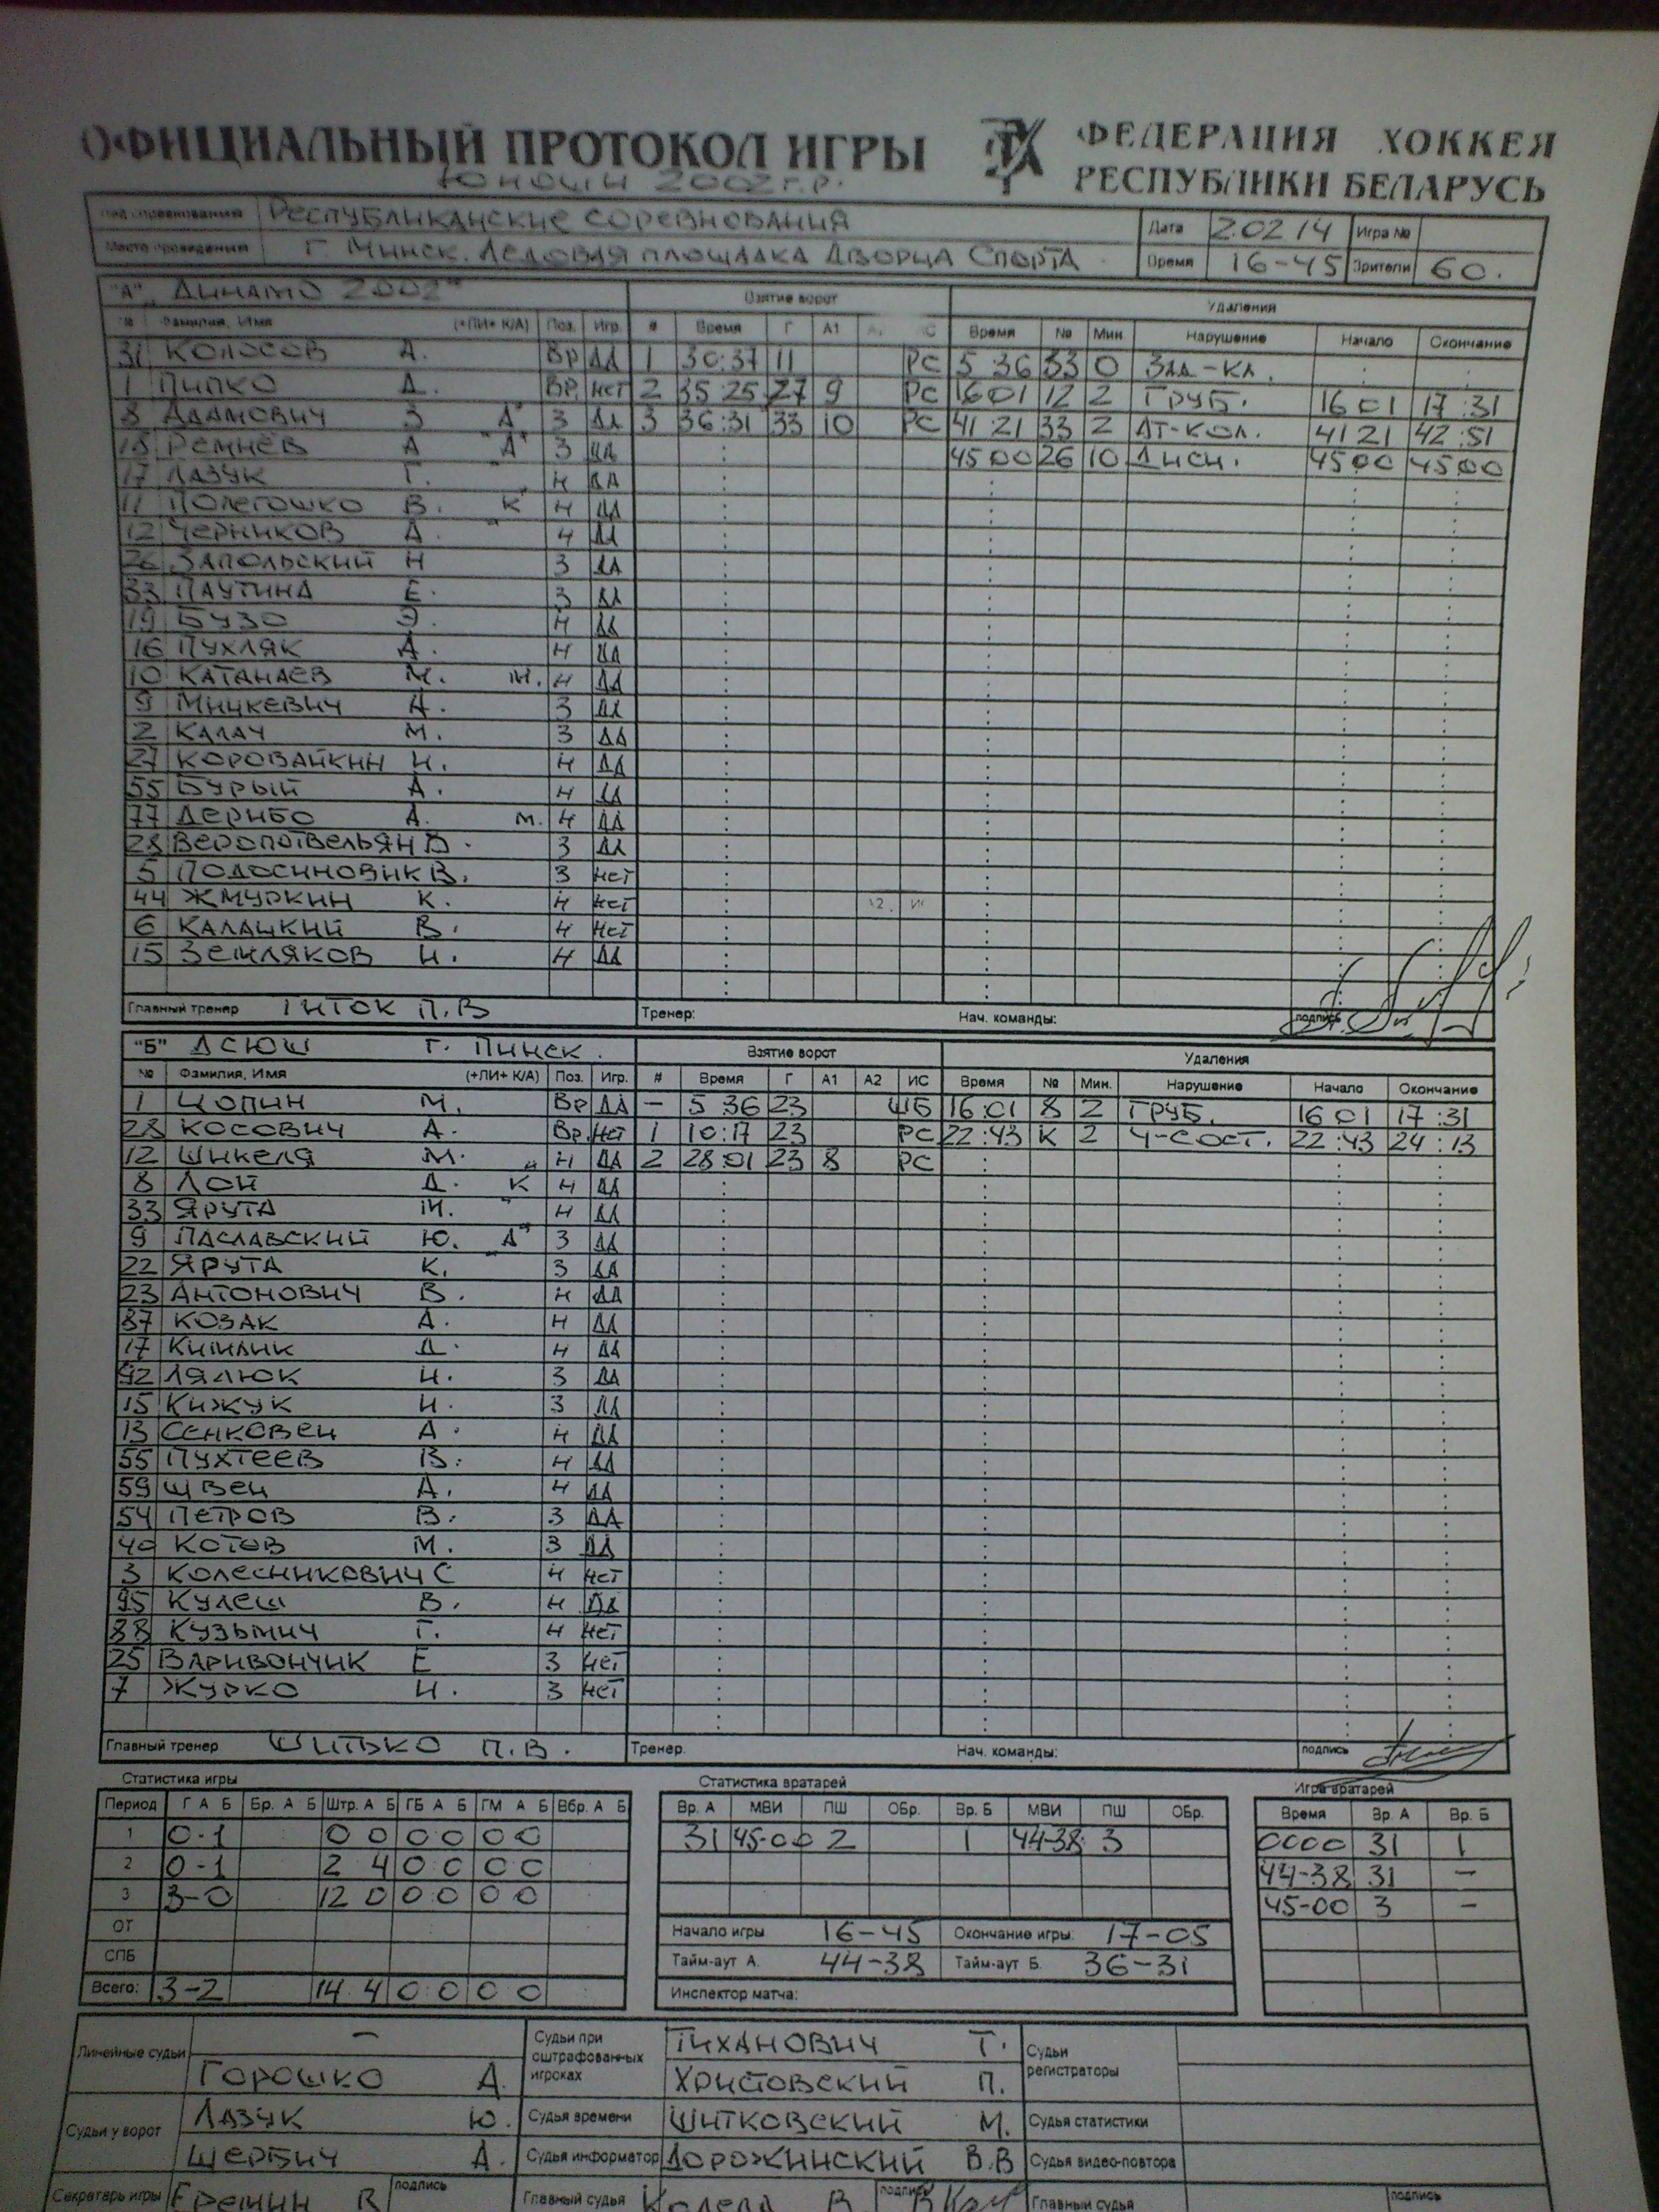 ОФИЦИАЛЬНЫЙ ПРОТОКОЛ ИГРЫ ФЕДЕРАЦИЯ ХОККЕЯ
ЮНОШИ 2002 Г.Р. РЕСПУБЛИКИ БЕЛАРУСЬ
РЕСПУБЛИКАНСКИЕ СОРЕВНОВАНИЯ Дата 2.02 14 Игра №
Место проведения г. Минск. Ледовая площадка Дворца Спорта Время 16-45 Зрители 60.
"А" Динамо 2002" Взятие ворот Удаления
№ Фамилия, Имя (+ЛИ+ К/А) Поз. Игр. # Время Г А1 Время № Мин. Нарушение Начало Окончание
31 КОЛОСОВ А. Вр ДА 1 30:37 11 РС 5 36 33 0 ЗАД-КЛ.
1 ПИПКО Д. Вр. НЕТ 2 35 25 27 9 РС 16 01 12 2 ГРУБ. 16 01 17:31
8 АДАМОВИЧ З "А" З ДА 3 36:31 33 10 РС 41 21 33 2 АТ-КОЛ. 41 21 42:51
18 РЕМНЕВ А "А" З ДА 45 00 26 10 ДИСЦ. 45 00 45 00
17 ЛАЗУК Г. Н ДА
11 ПОЛЕГОШКО В. "К" Н ДА
12 ЧЕРНИКОВ А. Н ДА
26 ЗАПОЛЬСКИЙ Н З ДА
33 ПАУТИНА Е. З ДА
19 БУЗО Э. Н ДА
16 ПУХЛЯК А. Н ДА
10 КАТАНАЕВ М. М. Н ДА
9 МИЦКЕВИЧ А. З ДА
2 КАЛАЧ М. З ДА
27 КОРОВАЙКИН И. Н ДА
55 БУРЫЙ А. Н ДА
77 ДЕРИБО А. М. Н ДА
28 ВЕРОПОТВЕЛЬЯН В. З ДА
5 ПОДОСИНОВИК В. З НЕТ
44 ЖМУРКИН К. Н НЕТ
6 КАЛАЦКИЙ В. Н НЕТ
15 ЗЕМЛЯКОВ И. Н ДА
Главный тренер ІНТОК П.В Тренер: Нач. команды: подпись
"Б" ДСЮШ г. ПИНСК. Взятие ворот Удаления
№ Фамилия, Имя (+ЛИ+ К/А) Поз. Игр. # Время Г А1 А2 ИС Время № Мин. Нарушение Начало Окончание
1 ЦОПИН М. Вр ДА – 5 36 23 ШБ 16:01 8 2 ГРУБ. 16 01 17:31
28 КОСОВИЧ А. Вр. НЕТ 1 10:17 23 РС 22:43 К 2 Ч-СОСТ. 22:43 24:13
12 ШИКЕЛЯ М. Н ДА 2 28 01 23 8 РС
8 ЛОЙ Д. "К" Н ДА
33 ЯРУТА М. Н ДА
9 ПАСЛАВСКИЙ Ю. "А" З ДА
22 ЯРУТА К. З ДА
23 АНТОНОВИЧ В. Н ДА
87 КОЗАК А. Н ДА
17 КИМЛИК Д. Н ДА
92 ЛЯЛЮК И. З ДА
15 КИЖУК И. З ДА
13 СЕНКОВЕЦ А. Н ДА
55 ПУХТЕЕВ В. Н ДА
59 ШВЕЦ А. Н ДА
54 ПЕТРОВ В. З ДА
40 КОТОВ М. З ДА
3 КОЛЕСНИКОВИЧ С Н НЕТ
95 КУЛЕШ В. Н ДА
88 КУЗЬМИЧ Г. Н НЕТ
25 ВАРИВОНЧИК Е З НЕТ
7 ЖУРКО И. З НЕТ
Главный тренер ШИТЬКО П.В. Тренер. Нач. команды: подпись
Статистика игры Статистика вратарей Игра вратарей
Период Г А Б Бр. А Б Штр. А Б ГБ А Б ГМ А Б Вбр. А Б Вр. А МВИ ПШ ОБр. Вр. Б МВИ ПШ ОБр. Время Вр. А Вр. Б
1 0-1 0 0 0 0 0 0 31 45-00 2 1 44-38 3 00 00 31 1
2 0-1 2 4 0 0 0 0 44-38 31 –
3 3-0 12 0 0 0 0 0 45-00 3 –
ОТ Начало игры 16-45 Окончание игры: 17-05
СПБ Тайм-аут А. 44-38 Тайм-аут Б. 36-31
Всего: 3-2 14 4 0 0 0 0 Инспектор матча:
Линейные судьи – Судьи при оштрафованных игроках ТИХАНОВИЧ Т. Судьи регистраторы
ГОРОШКО А. ХРИСТОВСКИЙ П.
Судьи у ворот ЛАЗУК Ю. Судья времени ШИТКОВСКИЙ М. Судья статистики
ЩЕРБИЧ А. Судья информатор ДОРОЖИНСКИЙ В.В Судья видео-повтора
Секретарь игры ЕРЕМИН В подпись Главный судья В. подпись Главный судья подпись